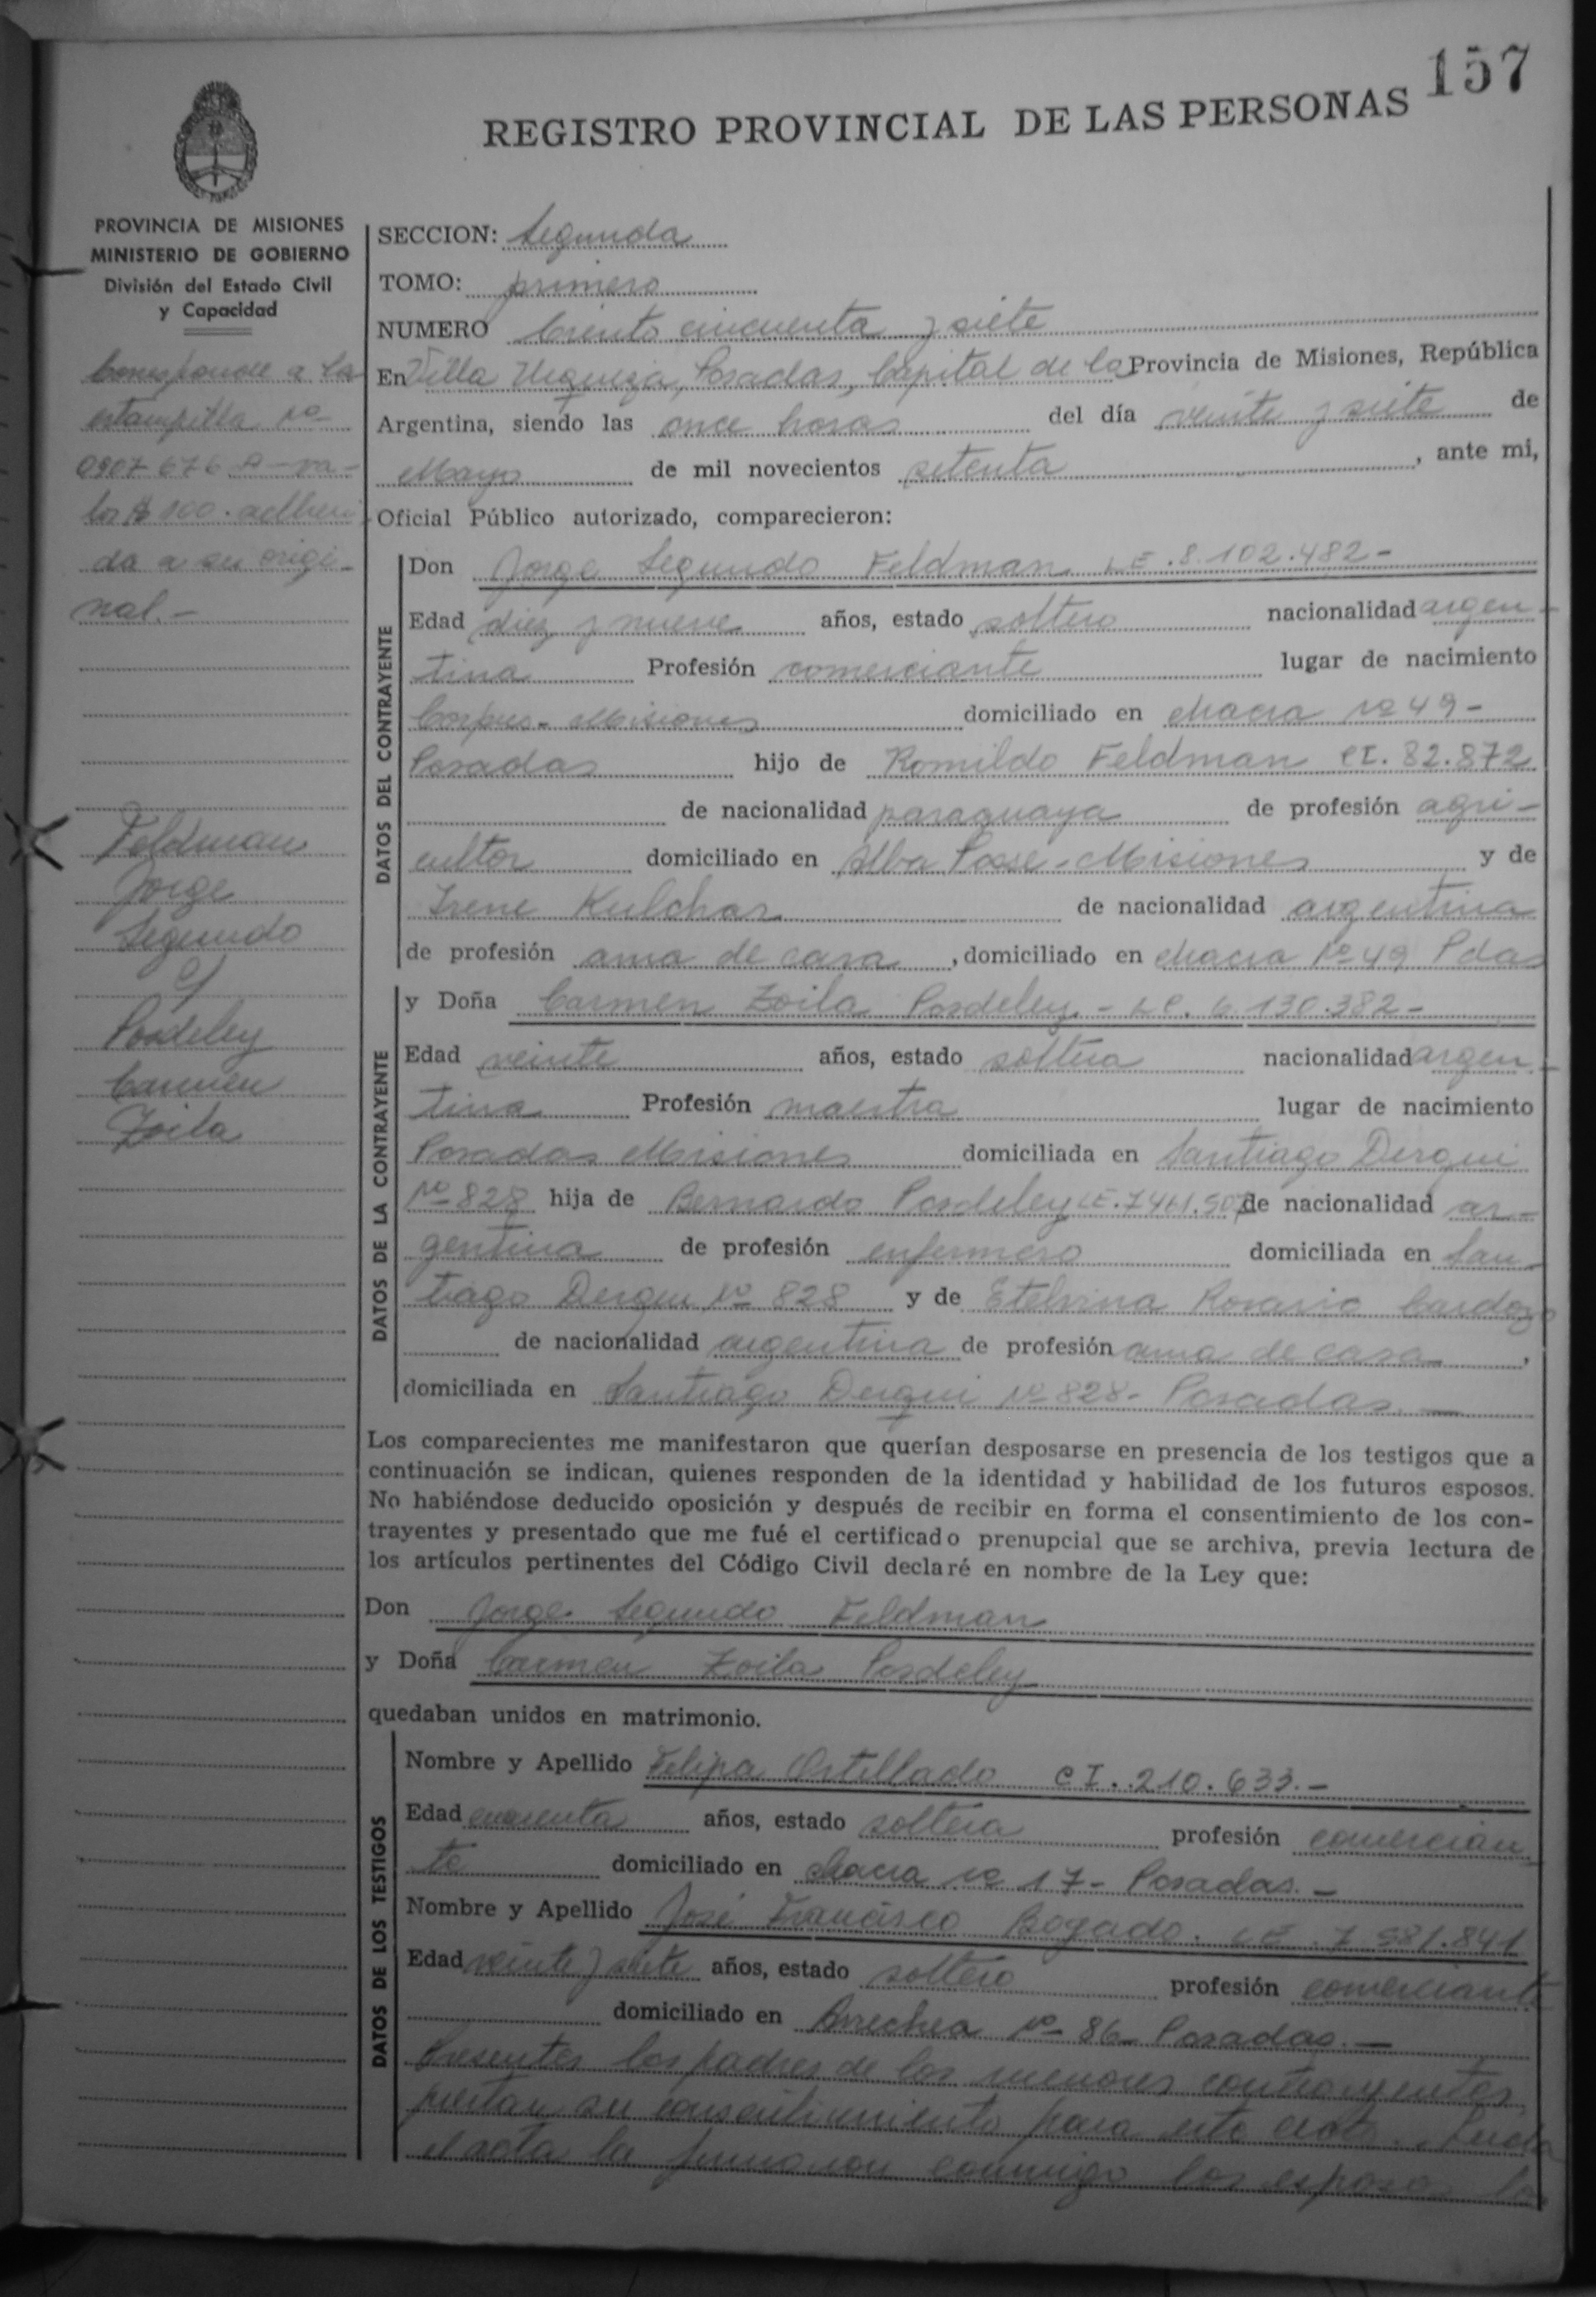 157
REGISTRO PROVINCIAL DE LAS PERSONAS
PROVINCIA DE MISIONES
MINISTERIO DE GOBIERNO
División del Estado Civil
y Capacidad
Corresponde a la
estampilla Nº
0907676 A - va-
lor $ 100. adheri
da a su origi-
nal.-
Feldman
Jorge
Segundo
c/
Posdeley
Carmen
Zoila
SECCION: Segunda
TOMO: primero
NUMERO Ciento cincuenta y siete
En Villa Urquiza, Posadas, Capital de la Provincia de Misiones, República
Argentina, siendo las once horas del día veinte y siete de
Mayo de mil novecientos setenta, ante mi,
Oficial Público autorizado, comparecieron:
DATOS DEL CONTRAYENTE
Don Jorge Segundo Feldman LE. 8.102.482-
Edad diez y nueve años, estado soltero nacionalidad argen-
tina Profesión comerciante lugar de nacimiento
Corpus - Misiones domiciliado en chacra Nº 49-
Posadas hijo de Romildo Feldman CI. 82.872
de nacionalidad paraguaya de profesión agri-
cultor domiciliado en Alba Posse - Misiones y de
Irene Kulchar de nacionalidad argentina
de profesión ama de casa, domiciliado en chacra Nº 49 Pdas
DATOS DE LA CONTRAYENTE
y Doña Carmen Zoila Posdeley - LC. 6.130.382-
Edad veinte años, estado soltera nacionalidad argen-
tina Profesión maestra lugar de nacimiento
Posadas Misiones domiciliada en Santiago Derqui
Nº 828 hija de Bernardo Posdeley LE. 7.461.507 de nacionalidad ar-
gentina de profesión enfermero domiciliada en San-
tiago Derqui Nº 828 y de Etelvina Rosario Cardozo
de nacionalidad argentina de profesión ama de casa,
domiciliada en Santiago Derqui Nº 828- Posadas.—
Los comparecientes me manifestaron que querían desposarse en presencia de los testigos que a
continuación se indican, quienes responden de la identidad y habilidad de los futuros esposos.
No habiéndose deducido oposición y después de recibir en forma el consentimiento de los con-
trayentes y presentado que me fué el certificado prenupcial que se archiva, previa lectura de
los artículos pertinentes del Código Civil declaré en nombre de la Ley que:
Don Jorge Segundo Feldman
y Doña Carmen Zoila Posdeley
quedaban unidos en matrimonio.
DATOS DE LOS TESTIGOS
Nombre y Apellido Felipa Ortellado CI. 210.633.-
Edad años, estado soltera profesión comercian-
te domiciliado en chacra Nº 17- Posadas.-
Nombre y Apellido José Francisco Bogado. LE. 7.581.841
Edad veinte y siete años, estado soltero profesión comerciante
domiciliado en Arrechea Nº 86- Posadas.—
Presentes los padres de los menores contrayentes,
prestan su consentimiento para este acto. Leida
el acta la firmaron conmigo los esposos los